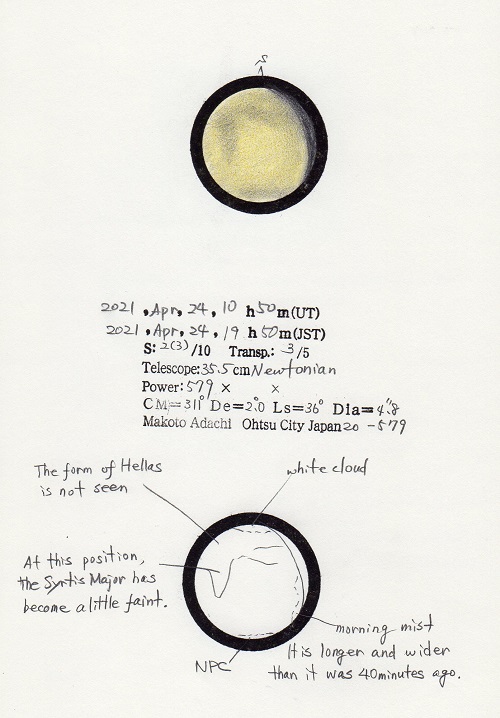 S
2021, Apr, 24, 10 h 50 m (UT)
2021, Apr, 24, 19 h 50 m (JST)
S: 2(3) /10 Transp.: 3 /5
Telescope: 35.5 cm Newtonian
Power: 579 × ×
CM=311° De=2.°0 Ls=36° Dia=4."8
Makoto Adachi Ohtsu City Japan 20 - 579
The form of Hellas
is not seen
white cloud
At this position,
the Syrtis Major has
become a little faint.
morning mist
It is longer and wider
than it was 40 minutes ago.
NPC